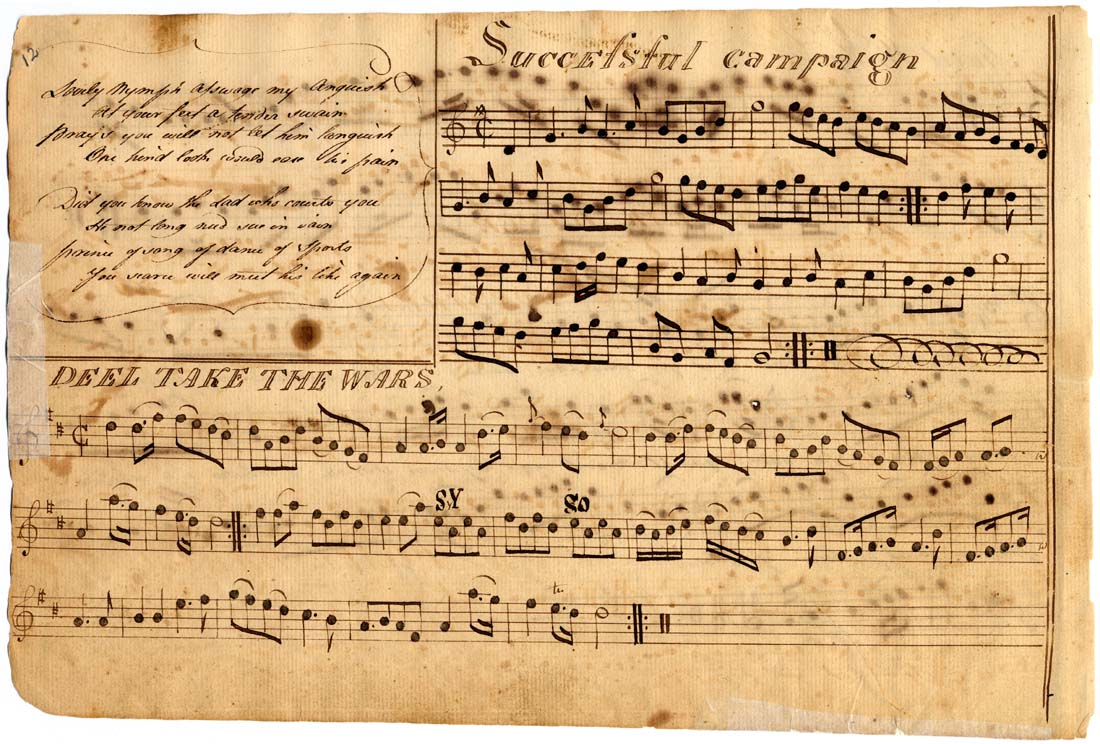 12
Lovely Nymph asswage my Anguish
At your feet a tender swain
Prays you will not let him languish
One kind look would ease his pain
Did you know the lad who courts you
He not long need sue in vain
Prince of song of dance of Sports
You scarce will meet his like again
Successful campaign
DEEL TAKE THE WARS,
SY So
tr